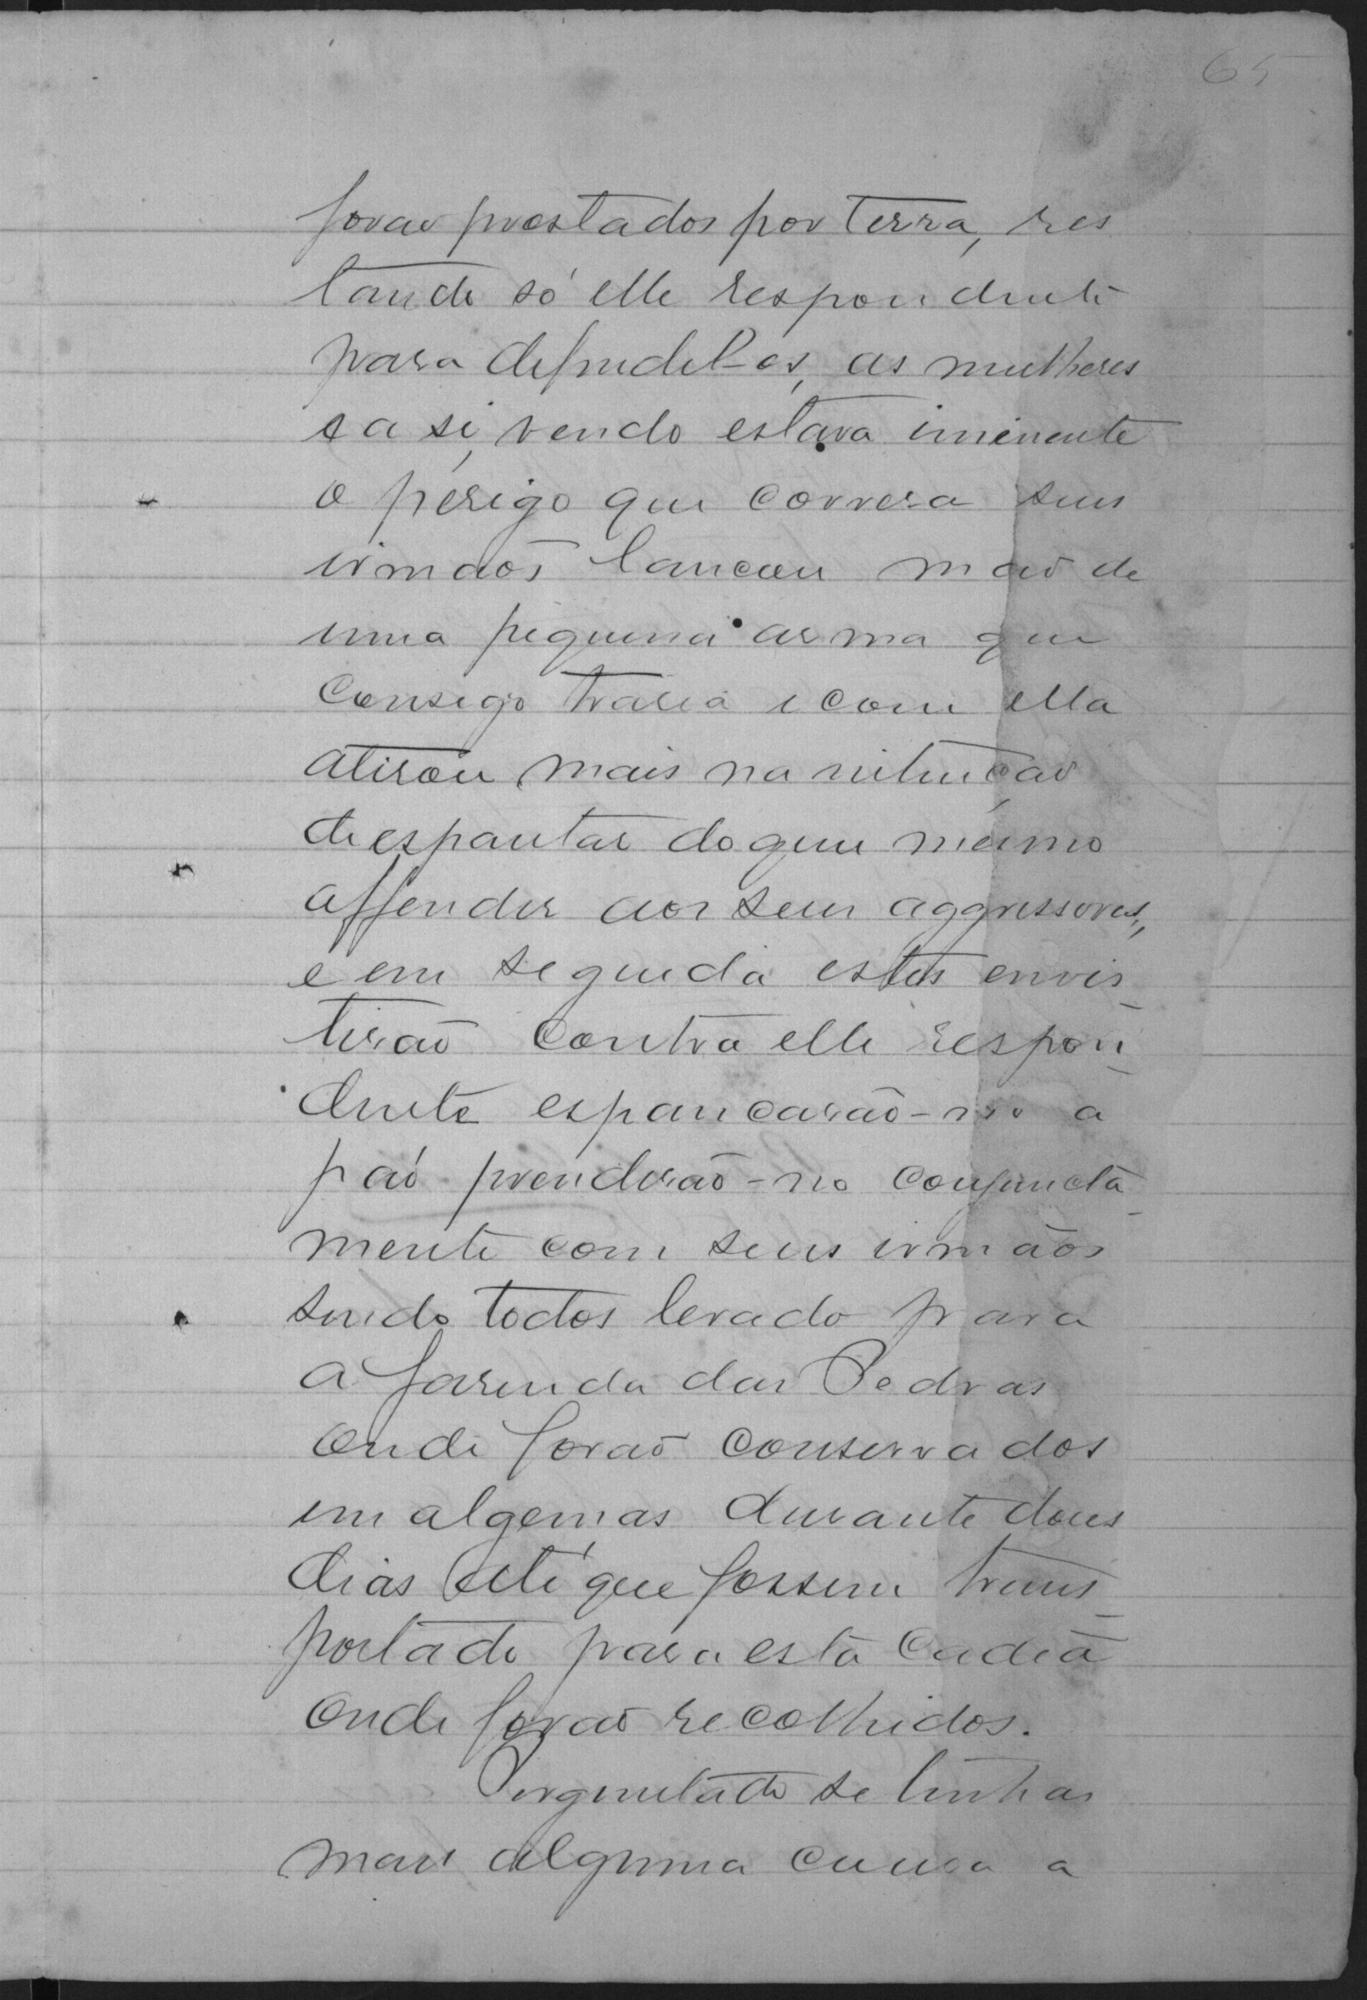 65
forao prostados por terra, res
tando só elle respondente
para defendel-os, as mulheres
e a si, vendo estava iminente
o perigo que correra seus
irmaõs lancou mão de
uma piquena arma que
consigo trasia e com ella
atirou mais na intução
de espantar do que mesmo
offender aos seus aggressores,
e em seguida estes envis-
tirão contra elle respon-
dente espancarão-no a
páo prenderão-no conjuncta-
mente com seus irmãos
sendo todos levado para
a fasenda das Pedras
onde forão conservados
em algemas durante dous
dias até que fossem trans-
portado para esta cadea
onde forão recolhidos.
Perguntado se tinha
mais alguma cousa a